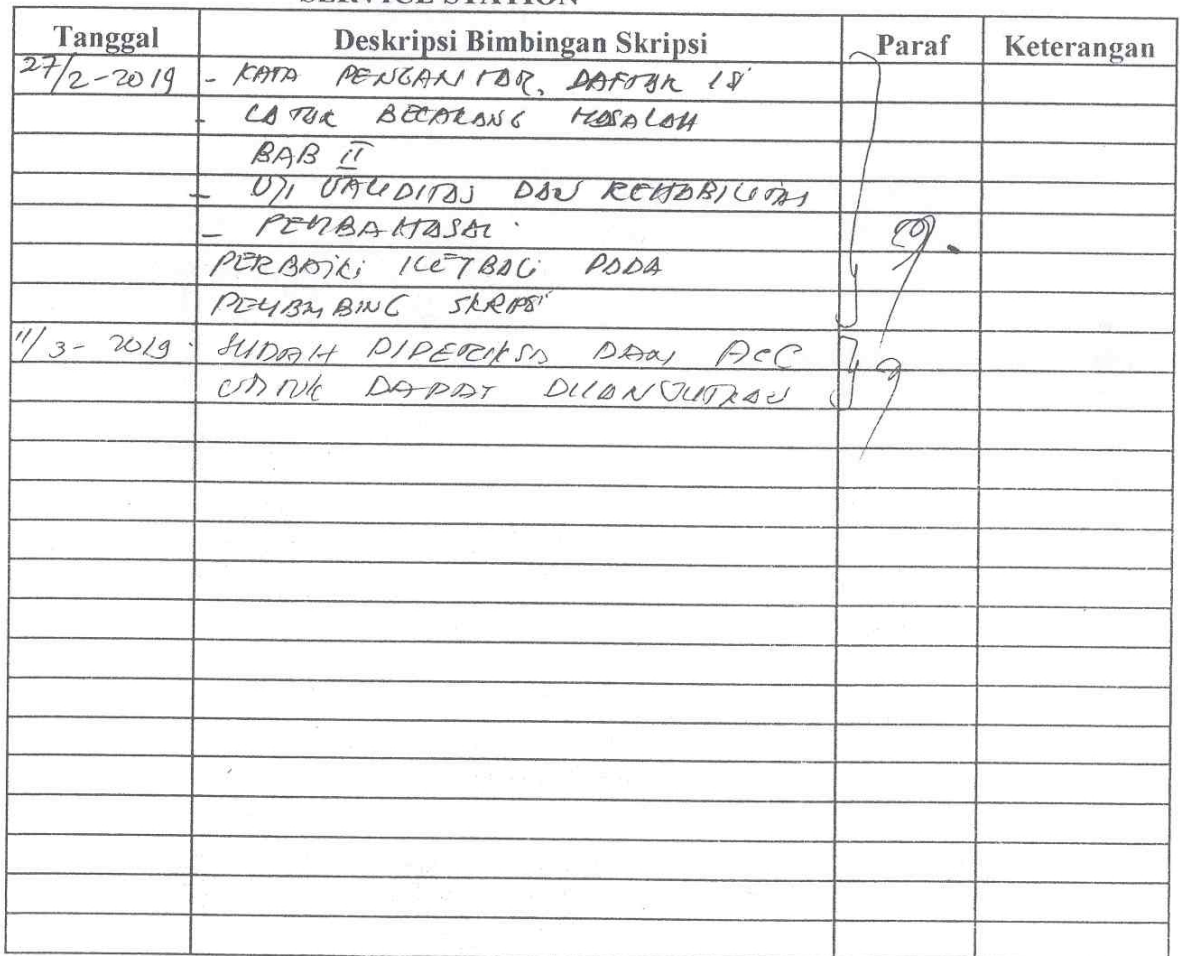 SERVICE STATION
Tanggal Deskripsi Bimbingan Skripsi Paraf Keterangan
27/2-2019 - KATA PENGANTAR, DAFTAR ISI
- LATAR BELAKANG MASALAH
BAB II
- UJI VALIDITAS DAN RELIABILITAS
- PEMBAHASAN
PERBAIKI KEMBALI PADA
PEMBIMBING SKRIPSI
11/3-2019 SUDAH DIPERIKSA DAN ACC
UNTUK DAPAT DILANJUTKAN